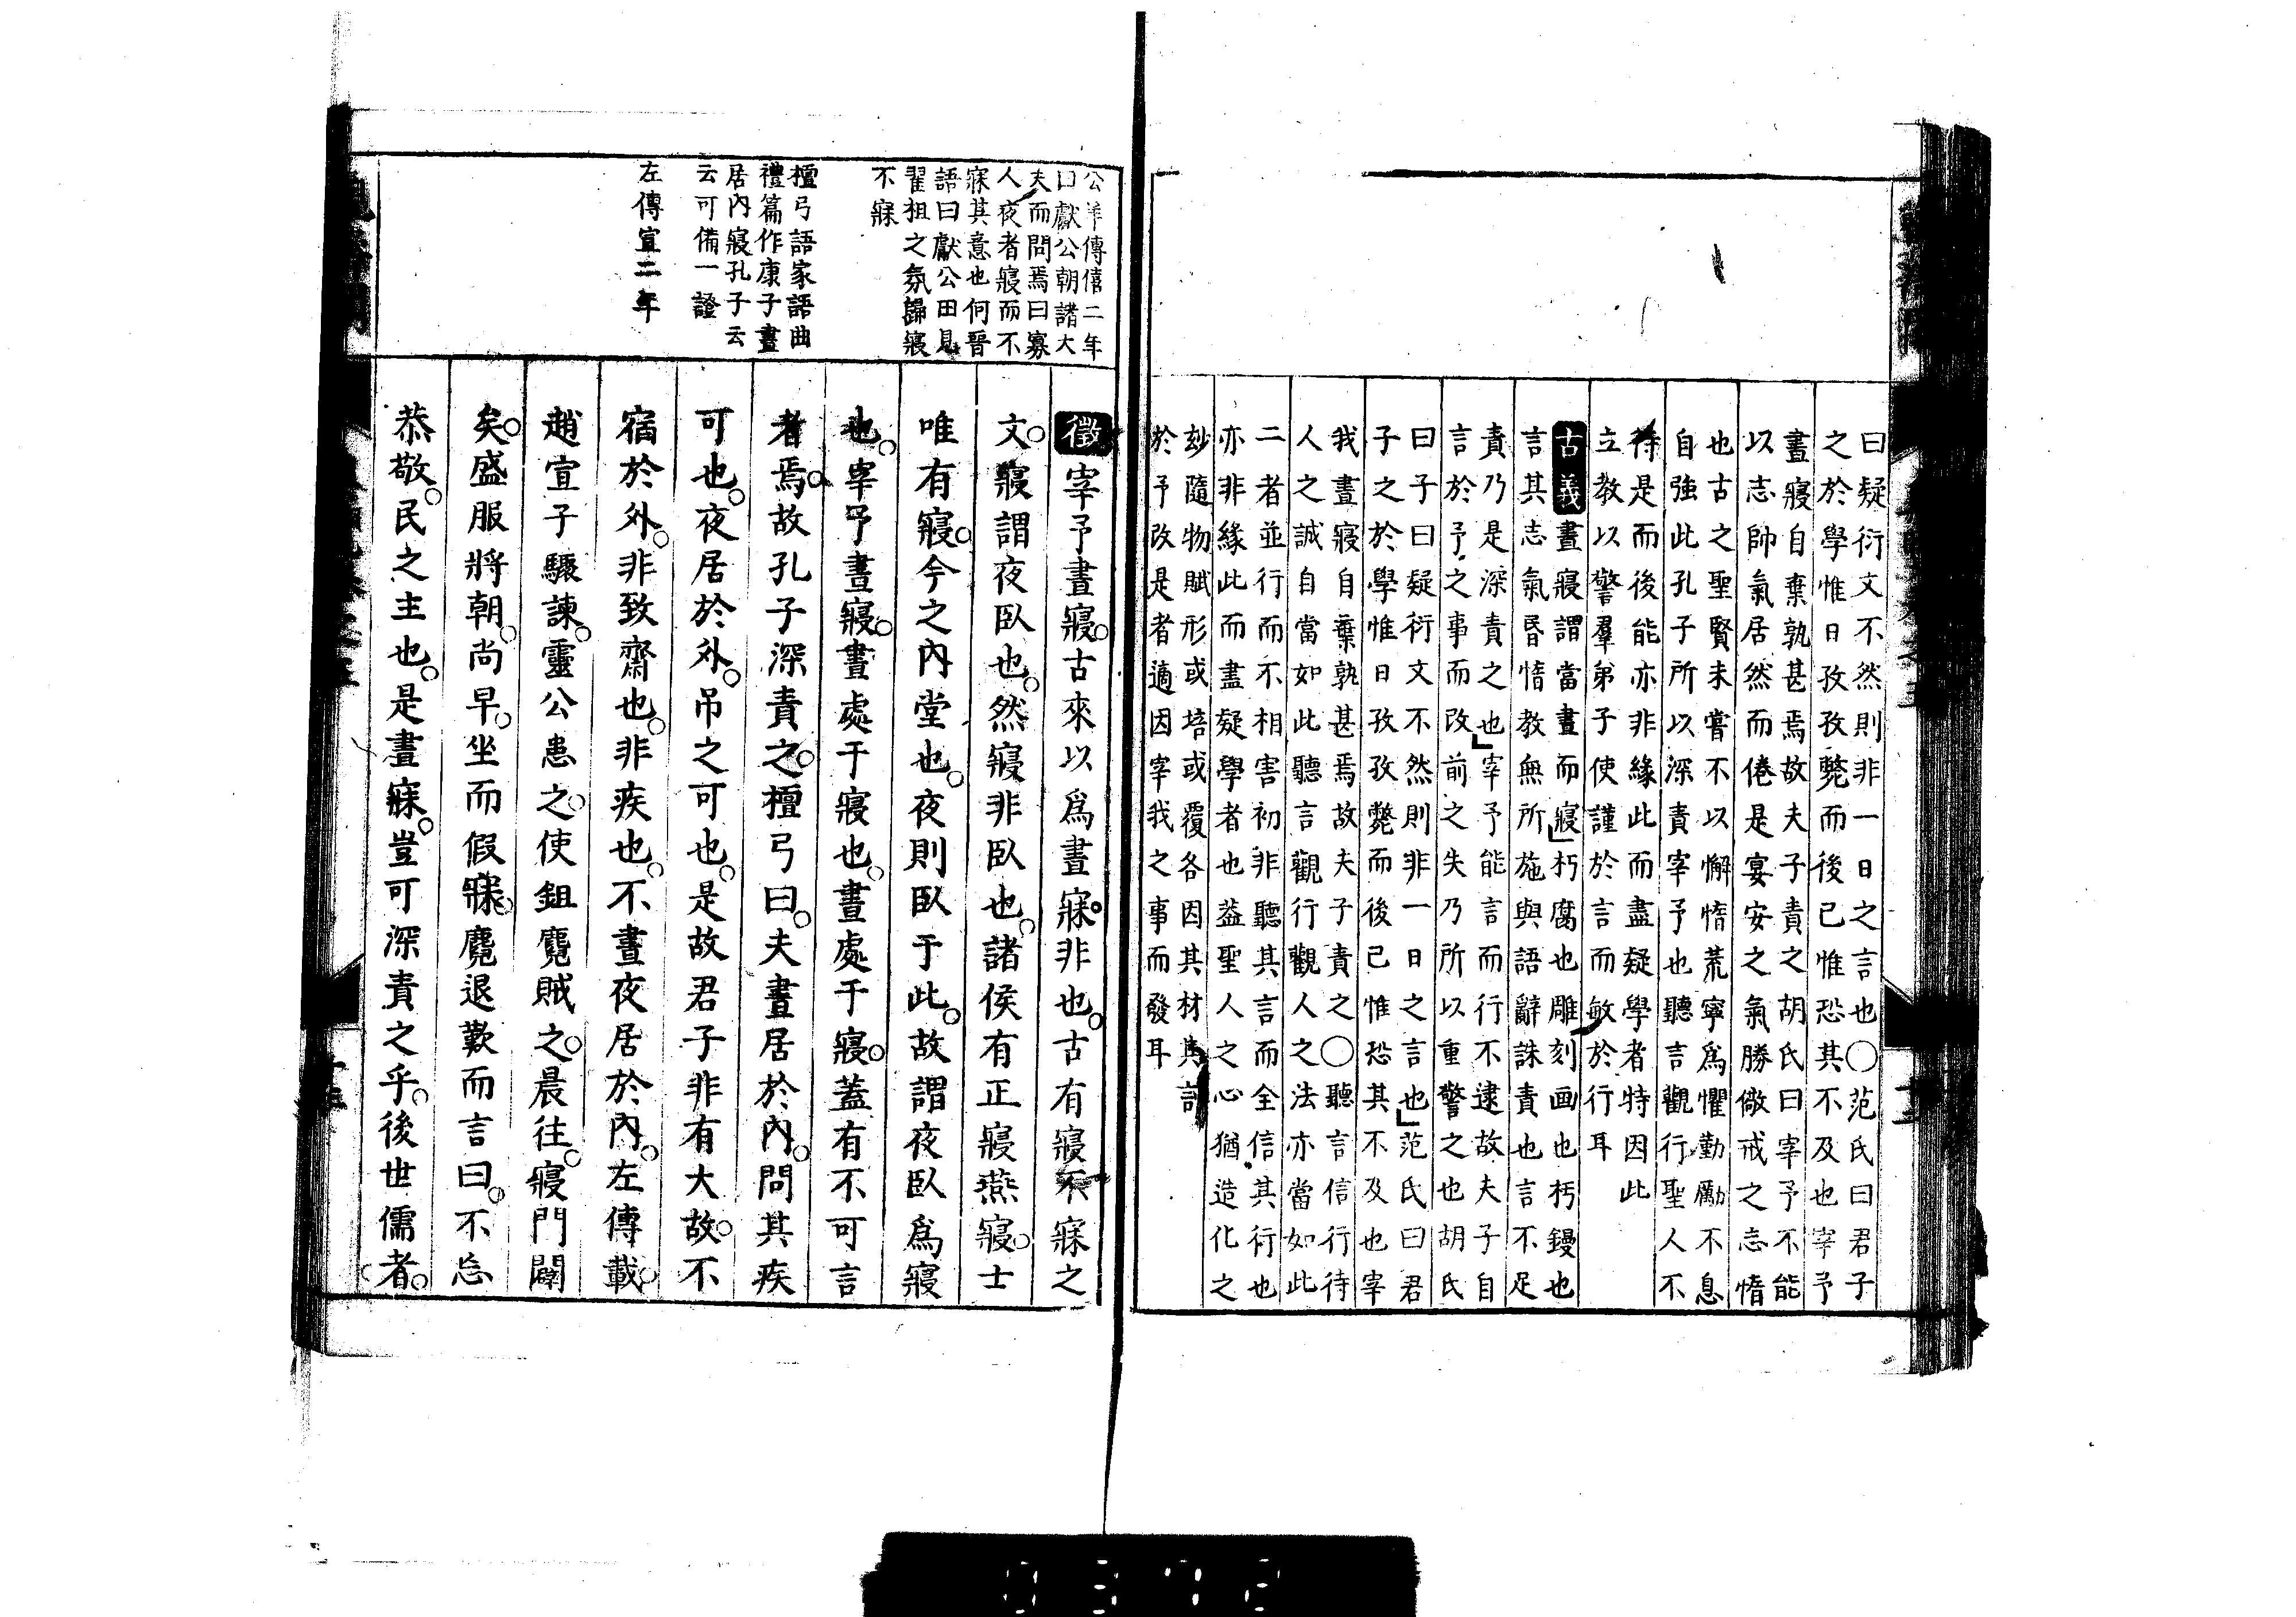 曰疑衍文不然則非一日之言也○范氏曰君子
之於學惟日孜孜斃而後已惟恐其不及也宰予
晝寢自棄孰甚焉故夫子責之胡氏曰宰予不能
以志帥氣居然而倦是宴安之氣勝儆戒之志惰
也古之聖賢未嘗不以懈惰荒寧爲懼勤勵不息
自強此孔子所以深責宰予也聽言觀行聖人不
待是而後能亦非緣此而盡疑學者特因此
立教以警羣弟子使謹於言而敏於行耳
古義晝寢謂當晝而寢朽腐也雕刻画也杇鏝也
言其志氣昏惰教無所施與語辭誅責也言不足
責乃是深責之也宰予能言而行不逮故夫子自
言於予之事而改前之失乃所以重警之也胡氏
曰子曰疑衍文不然則非一日之言也范氏曰君
子之於學惟日孜孜斃而後已惟恐其不及也宰
我晝寢自棄孰甚焉故夫子責之○聽言信行待
人之誠自當如此聽言觀行觀人之法亦當如此
二者並行而不相害初非聽其言而全信其行也
亦非緣此而盡疑學者也益聖人之心猶造化之
玅隨物賦形或培或覆各因其材其言
於予改是者適因宰我之事而發耳
公羊傳僖二年
曰獻公朝諸大
夫而問焉曰寡
人夜者寢而不
寐其意也何晉
語曰獻公田見
翟柤之氛歸寢
不寐
檀弓語家語曲
禮篇作康子晝
居內寢孔子云
云可備一證
左傳宣二年
徵宰予晝寢古來以爲晝寐非也古有寢不寐之
文寢謂夜臥也然寢非臥也諸侯有正寢燕寢士
唯有寢今之內堂也夜則臥于此故謂夜臥爲寢
也宰予晝寢晝處于寢也晝處于寢蓋有不可言
者焉故孔子深責之檀弓曰夫晝居於內問其疾
可也夜居於外吊之可也是故君子非有大故不
宿於外非致齋也非疾也不晝夜居於內左傳載
趙宣子驟諫靈公患之使鉏麑賊之晨往寢門闢
矣盛服將朝尚早坐而假寐麑退歎而言曰不忘
恭敬民之主也是晝寐豈可深責之乎後世儒者